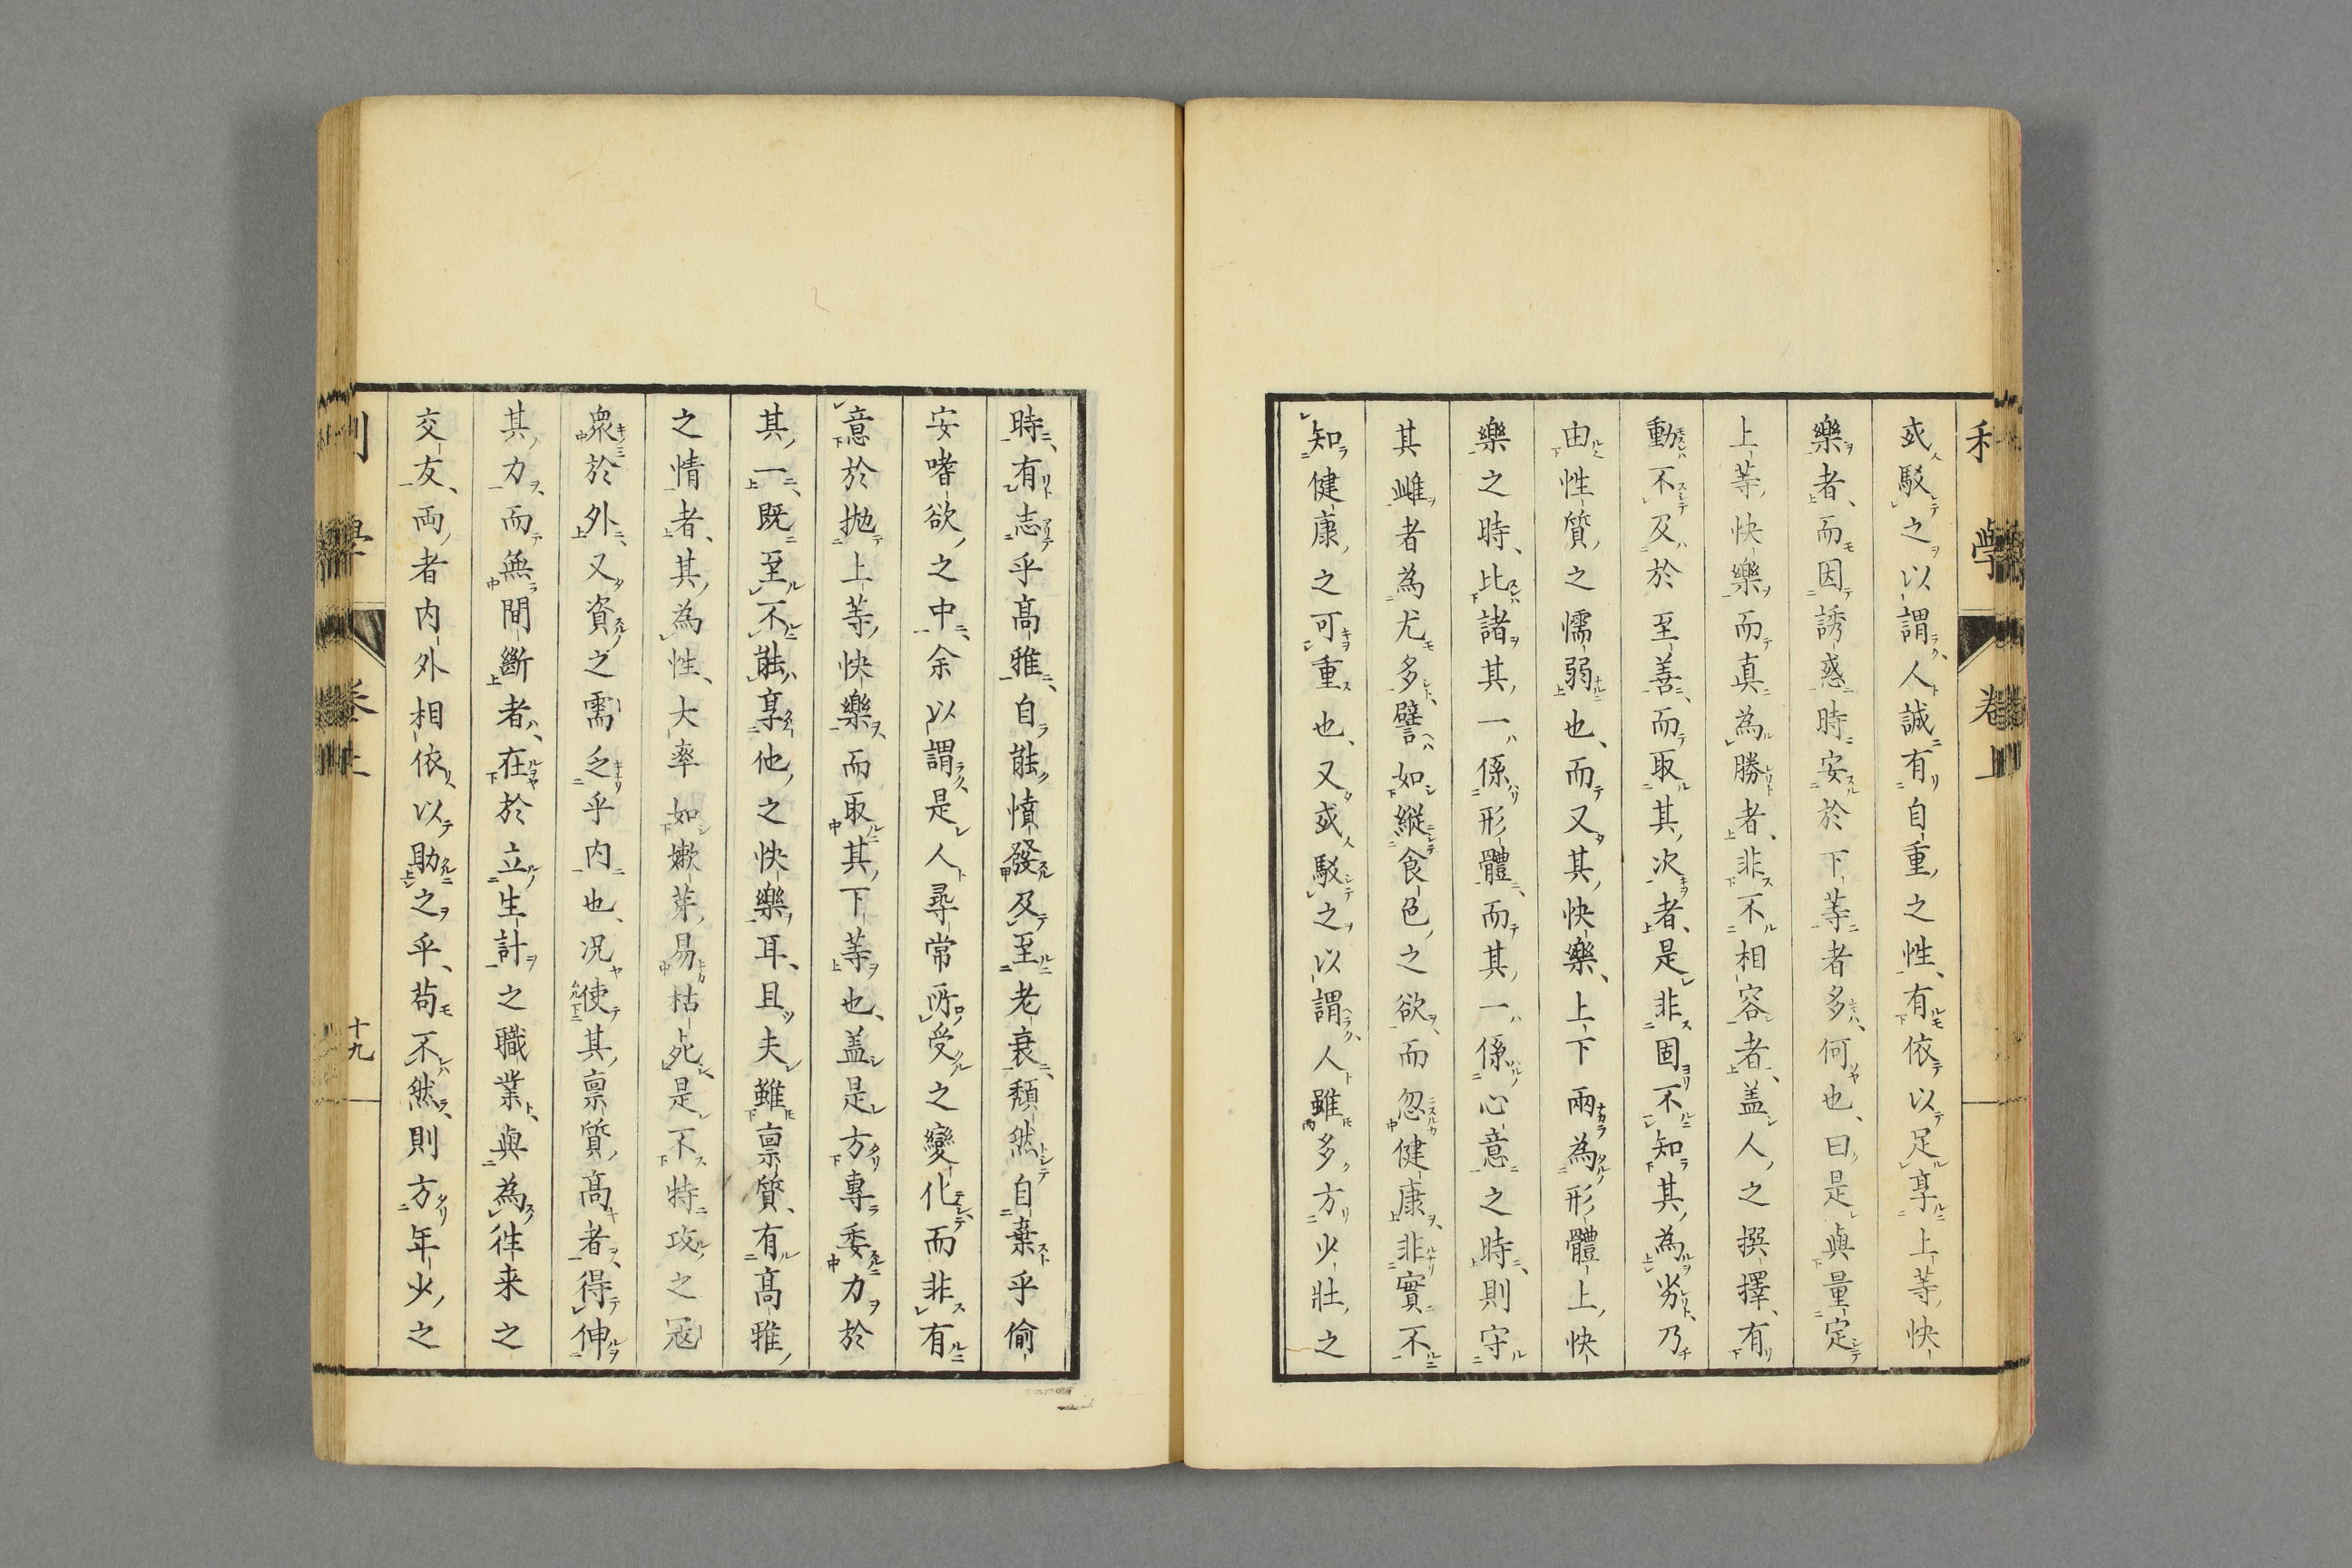 或駁之以謂人誠有自重之性、有依以足享上等快
樂者、而因誘惑時安於下等者多何也、曰是與量定
上等快樂而真為勝者、非不相容者、盖人之撰擇、有
動不及於至善、而取其次者、是非固不知其為劣、乃
由性質之懦弱也、而又其快樂、上下兩為形體上快
樂之時、比諸其一係形體、而其一係心意之時、則守
其雌者為尤多、譬如縱食色之欲、而忽健康、非實不
知健康之可重也、又或駁之以謂人雖多方少壯之
時、有志乎高雅、自能憤發及至老衰、頽然自棄乎偷
安嗜欲之中、余以謂是人尋常所受之變化而非有
意於抛上等快樂而取其下等也、盖是方專委力於
其一、既至不能享他之快樂耳、且夫雖禀質、有高雅
之情者、其為性、大率如嫩芽易枯死、是不特攻之冦
衆於外、又資之需乏乎内也、况使其禀質高者、得伸
其力、而無間斷者、在於立生計之職業、與為徃来之
交友、両者内外相依、以助之乎、苟不然、則方年少之
利學 卷上 十九